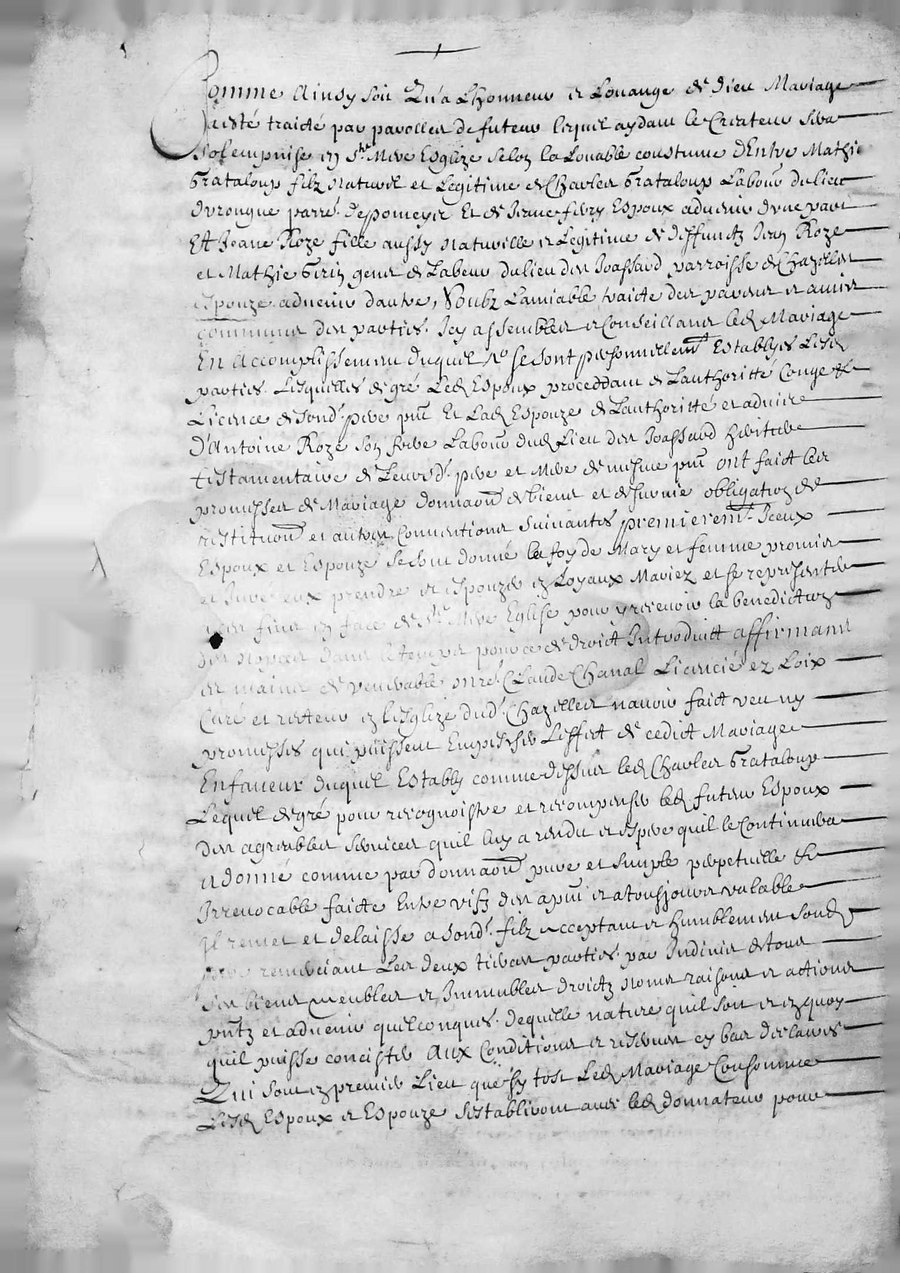 Comme Ainsy soit Qu'a Lhonneur et Louange de Dieu Mariage
aiesté traicté par parolles de futeur lequel aydant le Createur sera
Solempnise en Ste Mere Esglize selon la Louable coustume D'Entre Mathie
Grataloup filz Naturel et Legitime de Charles Grataloup Labour du lieu
parre. de pomeyer Et de feury Espoux advenir d'une part
Et Jeane Roze fille aussy Naturelle et Legitime de deffunctz Jean Roze
et Mathie Labeur du lieu des Joassard parroisse de Chazelles
Espouze advenir d'autre, Soubz Lamiable traicté des parens et amis
communs des parties. Icy assembles et Conseillans led. Mariage
En Accomplissement duquel se sont personnellemt Establyes Lesd
parties. Lesquelles de gré Led. Espoux proceddant de Lauthoritté Congé &
Licence de sond. pere pnt Et Lad. Espouze de Lauthoritté et advis
D'Antoine Roze son frere Labour dud. Lieu des Joassard heritier
testamentaire de Leursd. pere et Mere de mesme pnt ont faict les
promesses de Mariage donnaon de biens et de survie obligation de
restituon et autres Conventions suivantes premieremt. Iceux
Espoux et Espouze se sont donné la foy de Mary et femme promis
et Juré eux prendre et espouzer en Loyaux Mariez et se representer
fins en face de Ste Mere Eglise pour y recevoir la benediction
des Nopces dans le temps pour ce de droict Introduict affirmant
es mains de venerable Mre. Claude Chanal Licencié ez Loix
Curé et recteur en lesglize dud. Chazelles navoir faict veu ny
promesses qui puissent Empescher Leffet de cedict Mariage
En faveur Duquel Establi comme dessus led. Charles Grataloup
Lequel de gré pour recognoistre et recompenser led. futeur Espoux
des agreables services quil luy a rendu et espere quil le Continuera
a donné comme par donnaon pure et simple perpetuelle &
Irrevocable faicte Entre vifz des apnt et atousjours valable
Il remet et delaisse a sond. filz acceptant et humblement sond.
pere remerciant Les deux tiers parties. par Indivis de tous
Ses biens Meubles et Immubles droictz noms raisons et actions
pntz et advenir quelconques. de quelle nature quil soit et en quoy
quil puisse concister Aux Conditions et reserves cy bas declarees
Qui sont en premier Lieu que sy tost Led. Mariage Consommé
Lesd Espoux et Espouze s'establiront avec led. donnateur pour